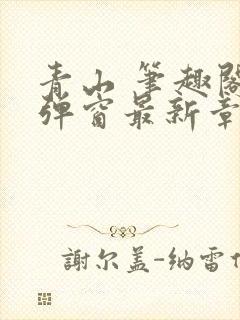 青山 笔趣阁
弹窗最新章
謝尔盖-纳雷